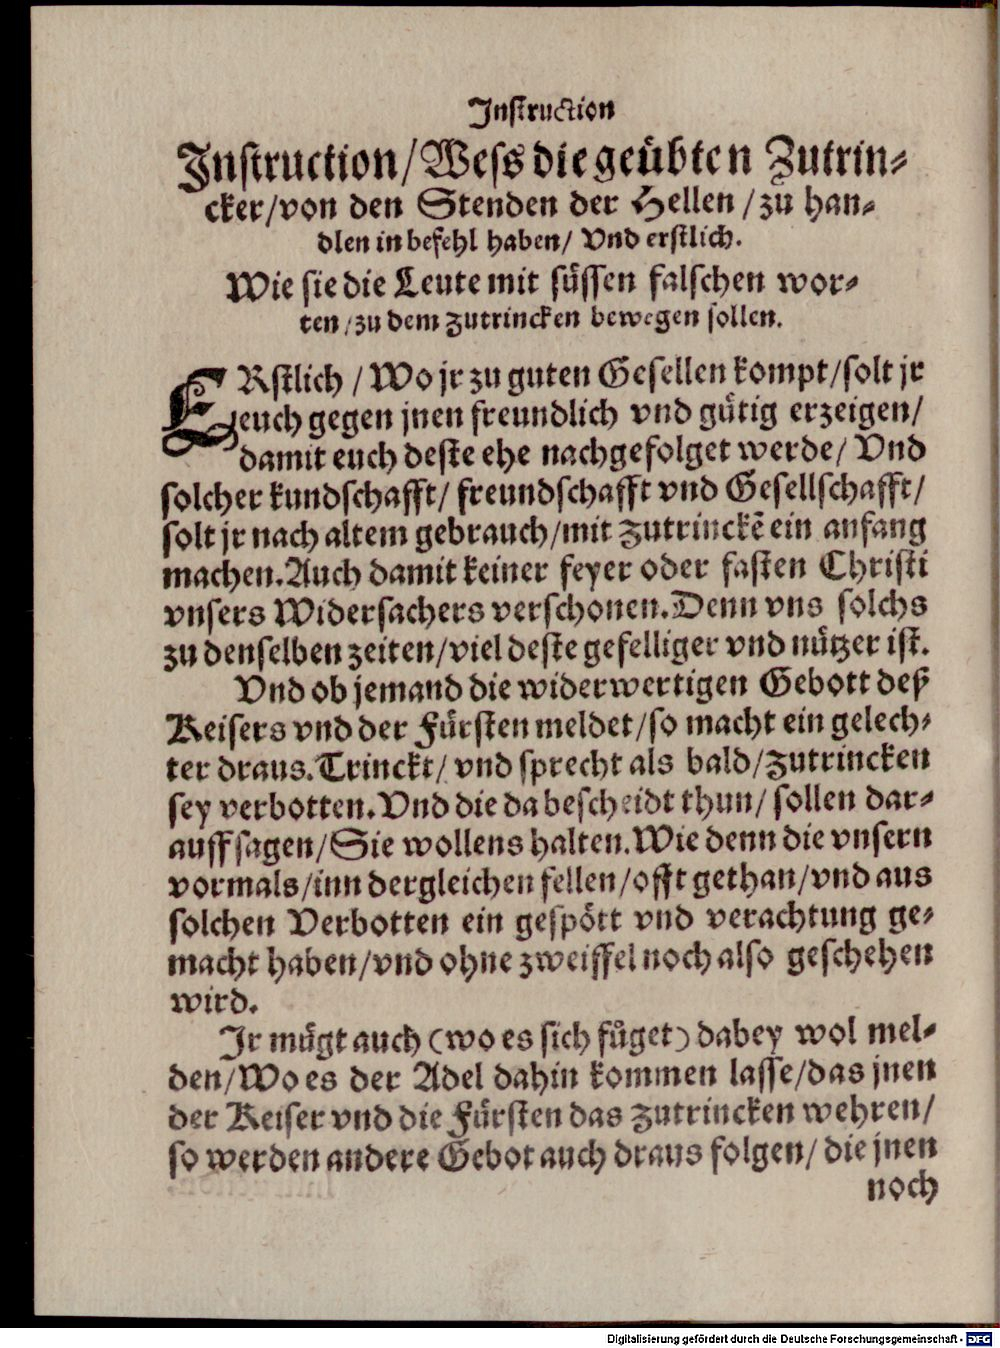 Instruction
Instruction/Wess die geübten Zutrin-
cker/von den Stenden der Hellen/zů han-
dlen in befehl haben/ Vnd erstlich.
Wie sie die Leute mit süssen falschen wor-
ten/zu dem zutrincken bewegen sollen.
ERstlich/Wo jr zu guten Gesellen kompt/solt jr
euch gegen jnen freundlich vnd gütig erzeigen/
damit euch deste ehe nachgefolget werde/ Vnd
solcher kundschafft/ freundschafft vnd Gesellschafft/
solt jr nach altem gebrauch/mit zutrinckẽ ein anfang
machen. Auch damit keiner feyer oder fasten Christi
vnsers Widersachers verschonen. Denn vns solchs
zu denselben zeiten/viel deste gefelliger vnd nützer ist.
Vnd ob jemand die widerwertigen Gebott deß
Keisers vnd der Fürsten meldet/so macht ein gelech-
ter draus. Trinckt/ vnd sprecht als bald/zutrincken
sey verbotten. Vnd die da bescheidt thun/ sollen dar-
auff sagen/Sie wollens halten. Wie denn die vnsern
vormals/inn dergleichen fellen/offt gethan/vnd aus
solchen Verbotten ein gespött vnd verachtung ge-
macht haben/vnd ohne zweiffel noch also geschehen
wird.
Ir mügt auch (wo es sich füget) dabey wol mel-
den/Wo es der Adel dahin kommen lasse/das jnen
der Keiser vnd die Fürsten das zutrincken wehren/
so werden andere Gebot auch draus folgen/ die jnen
noch
Digitalisierung gefördert durch die Deutsche Forschungsgemeinschaft - DFG